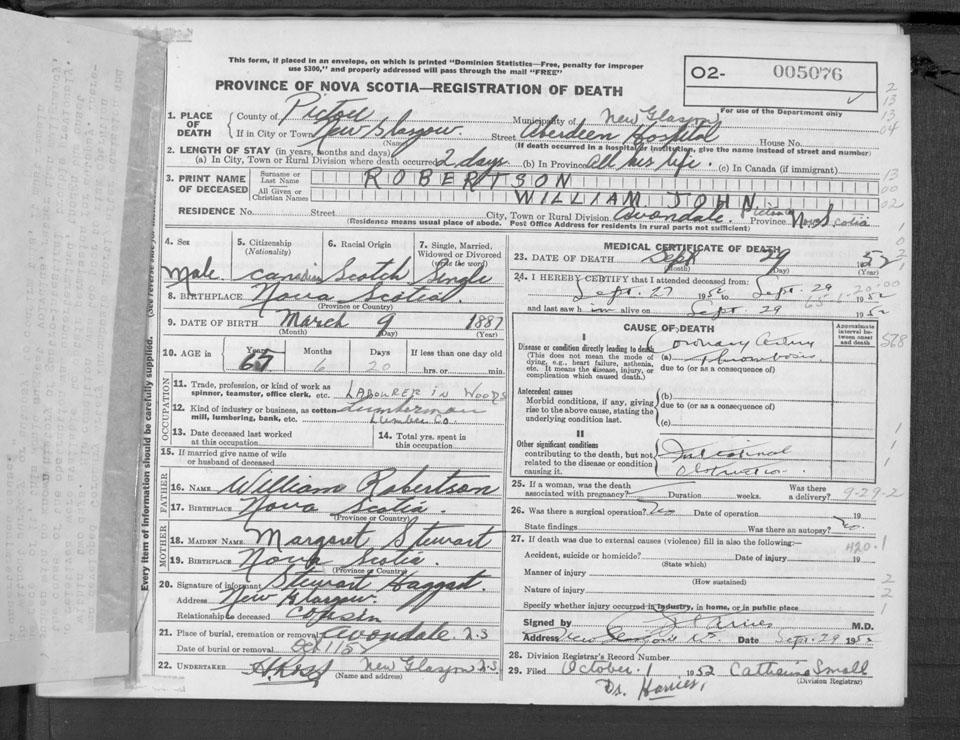 This form, if placed in an envelope, on which is printed "Dominion Statistics—Free, penalty for improper
use $300," and properly addressed will pass through the mail "FREE"
PROVINCE OF NOVA SCOTIA—REGISTRATION OF DEATH
O2- 005076
For use of the Department only
1. PLACE OF DEATH
County of Pictou Municipality of New Glasgow
If in City or Town New Glasgow. Street Aberdeen Hospital House No.
(Name) (If death occurred in a hospital or institution, give the name instead of street and number)
2. LENGTH OF STAY (in years, months and days)
(a) In City, Town or Rural Division where death occurred 2 days. (b) In Province all his life. (c) In Canada (if immigrant)
3. PRINT NAME OF DECEASED
Surname or Last Name ROBERTSON
All Given or Christian Names WILLIAM JOHN
RESIDENCE No. Street City, Town or Rural Division Avondale. Pictou Province Nova Scotia
(Residence means usual place of abode. Post Office Address for residents in rural parts not sufficient)
4. Sex Male.
5. Citizenship (Nationality) Canadian
6. Racial Origin Scotch
7. Single, Married, Widowed or Divorced (write the word) Single
8. BIRTHPLACE Nova Scotia.
(Province or Country)
9. DATE OF BIRTH March 9 1887
(Month) (Day) (Year)
10. AGE in Years Months Days If less than one day old
6 20 hrs. or min.
OCCUPATION
11. Trade, profession, or kind of work as spinner, teamster, office clerk, etc. LABOURER IN WOODS
12. Kind of industry or business, as cotton mill, lumbering, bank, etc. Lumberman
Lumber Co.
13. Date deceased last worked at this occupation
14. Total yrs. spent in this occupation
15. If married give name of wife or husband of deceased
FATHER
16. NAME William Robertson
17. BIRTHPLACE Nova Scotia.
(Province or Country)
MOTHER
18. MAIDEN NAME Margaret Stewart
19. BIRTHPLACE Nova Scotia
(Province or Country)
20. Signature of informant Stewart Haggart.
Address New Glasgow.
Relationship to deceased Cousin
21. Place of burial, cremation or removal Avondale. N.S
Date of burial or removal Oct 1/52
22. UNDERTAKER New Glasgow N.S.
(Name and address)
Every item of information should be carefully supplied.
MEDICAL CERTIFICATE OF DEATH
23. DATE OF DEATH Sept 29 1952
(Month) (Day) (Year)
24. I HEREBY CERTIFY that I attended deceased from:
Sept. 27 1952 to Sept. 29 1952
and last saw him alive on Sept. 29 1952
CAUSE OF DEATH
Approximate interval between onset and death
I
Disease or condition directly leading to death
(This does not mean the mode of dying, e.g., heart failure, asthenia, etc. It means the disease, injury, or complication which caused death.)
(a) Coronary Artery thrombosis
due to (or as a consequence of)
Antecedent causes
Morbid conditions, if any, giving rise to the above cause, stating the underlying condition last.
(b)
due to (or as a consequence of)
(c)
II
Other significant conditions contributing to the death, but not related to the disease or condition causing it.
Intestinal
Obstruction.
25. If a woman, was the death associated with pregnancy? Duration weeks. Was there a delivery? 9-29-2
26. Was there surgical operation? No Date of operation 19
State findings Was there an autopsy? No.
27. If death was due to external causes (violence) fill in also the following:— 420.1
Accident, suicide or homicide? Date of injury 19
(State which)
Manner of injury
(How sustained)
Nature of injury
Specify whether injury occurred in industry, in home, or in public place
Signed by M.D.
Address New Glasgow N.S. Date Sept. 29 1952
28. Division Registrar's Record Number
29. Filed October 1 1952 Catharine Small
(Division Registrar)
Dr. Harries,